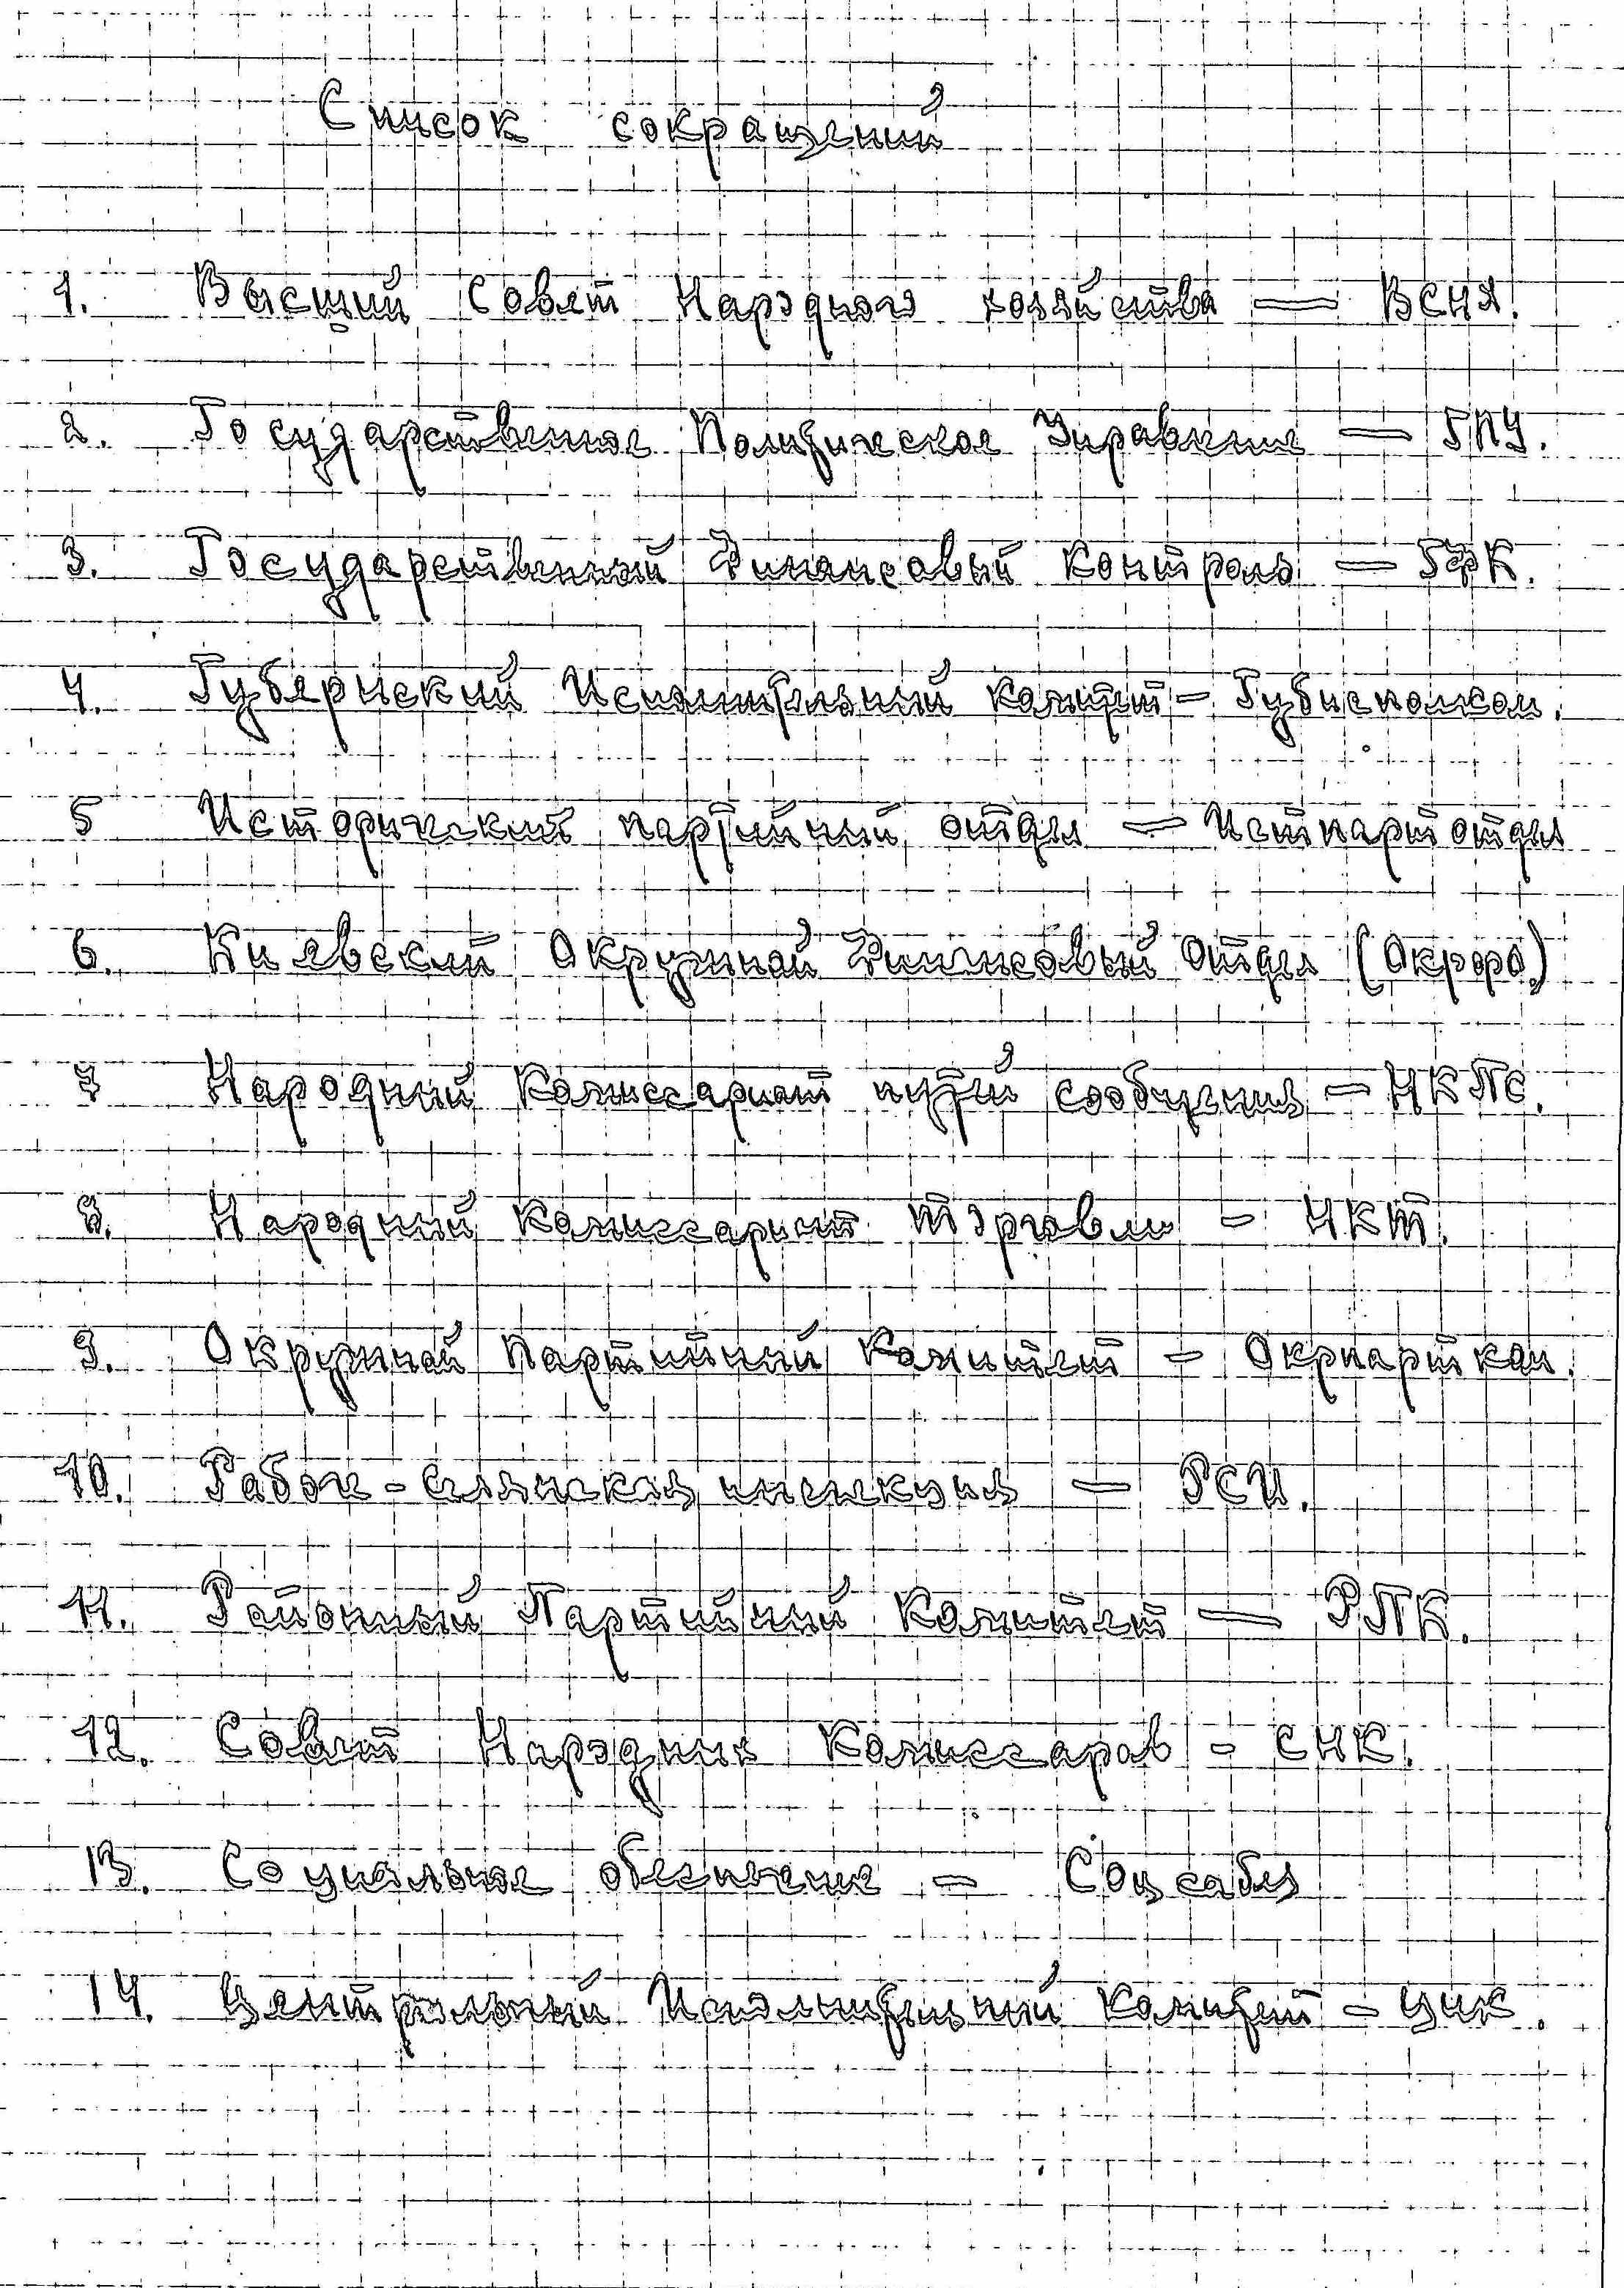 Список сокращений
1. Высший Совет Народного хозяйства — ВСНХ.
2. Государственное Политическое Управление — ГПУ.
3. Государственный Финансовый Контроль — ГФК.
4. Губернский Исполнительный Комитет — Губисполком.
5 Исторический партийный отдел — Истпартотдел
6. Киевский Окружной Финансовый Отдел (Окрфо)
7 Народный Комиссариат путей сообщения — НКПС.
8. Народный Комиссариат Торговли — НКТ.
9. Окружной Партийный Комитет — Окрпартком.
10. Рабоче-селянская инспекция — РСИ.
11. Районный Партийный Комитет — РПК.
12. Совет Народных Комиссаров — СНК.
13. Социальное обеспечение — Соцзабез
14. Центральный Исполнительный Комитет — ЦИК.